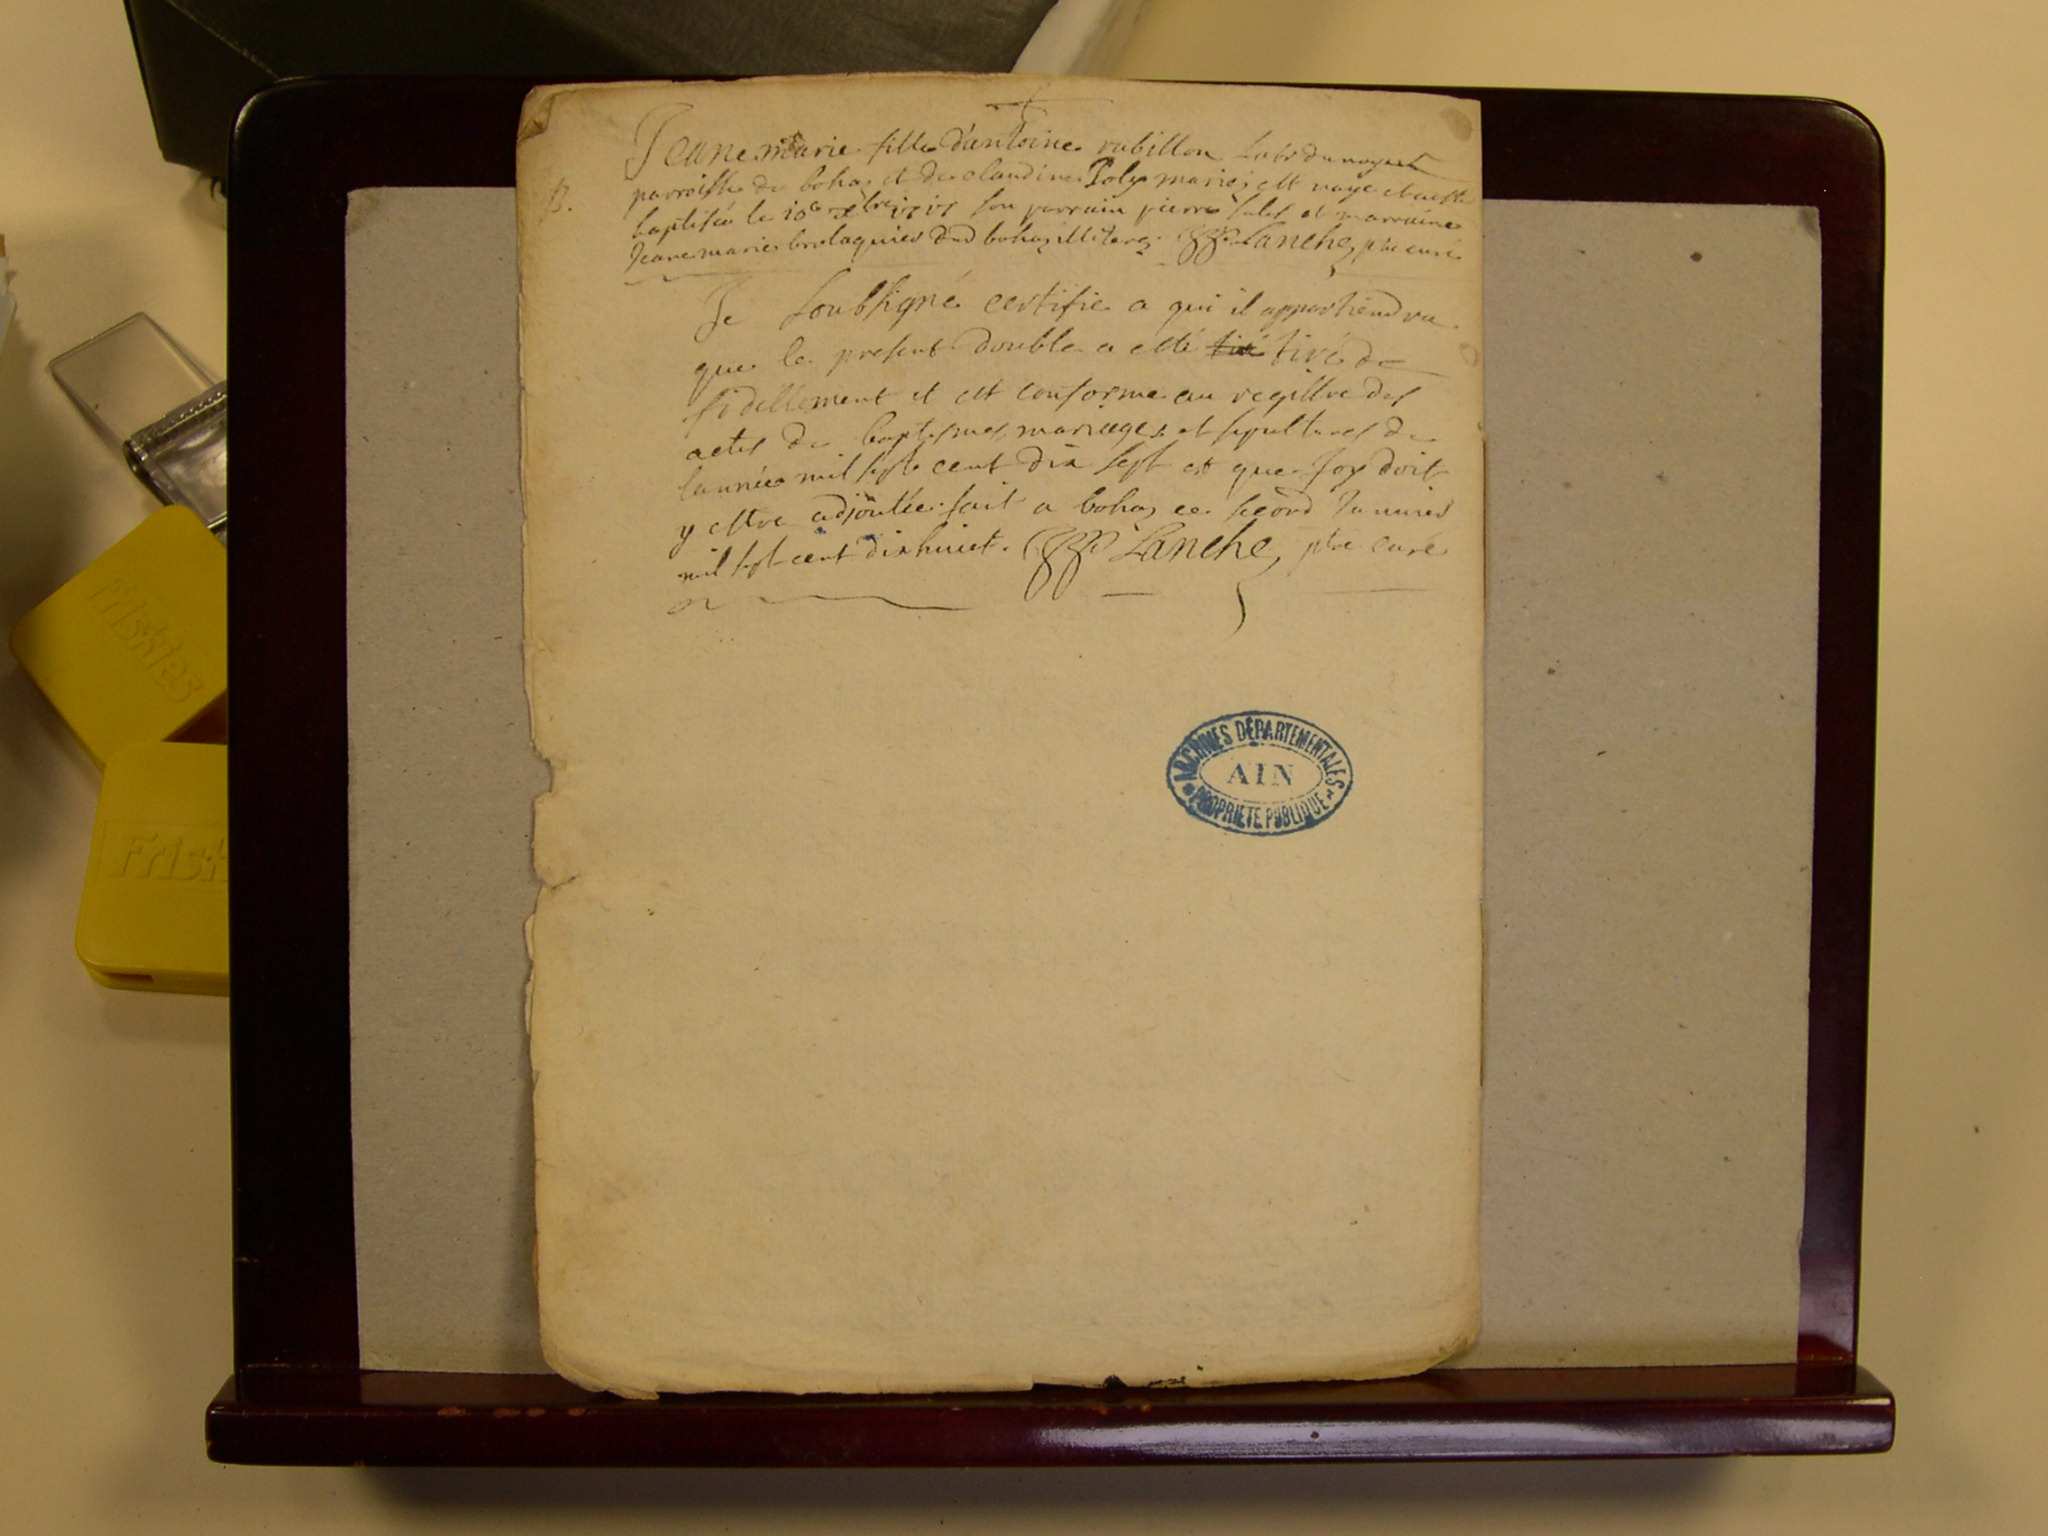 Jeane marie fille d'antoine rubillon Labr du noyer
B.
parroisse de bohas et de claudine Poly mariés est naye et a esté
baptisée le 10e xbre 1717 son parrain pierre et marraine
Jeane marie dud bohas illiteres Lanche, ptre curé
Je Soubsigné certifie a qui il appartiendra
que le present double a esté tiré de
fidellement et est conforme au registre des
actes de baptesmes, mariages, et sepultures de
lannée mil sept cent dix sept et que foy doit
y estre adjoutée. fait a bohas ce second Janvier
mil sept cent dix huict. Lanche, ptre curé
ARCHIVES DÉPARTEMENTALES
AIN
PROPRIÉTÉ PUBLIQUE
Friskies
Frisk